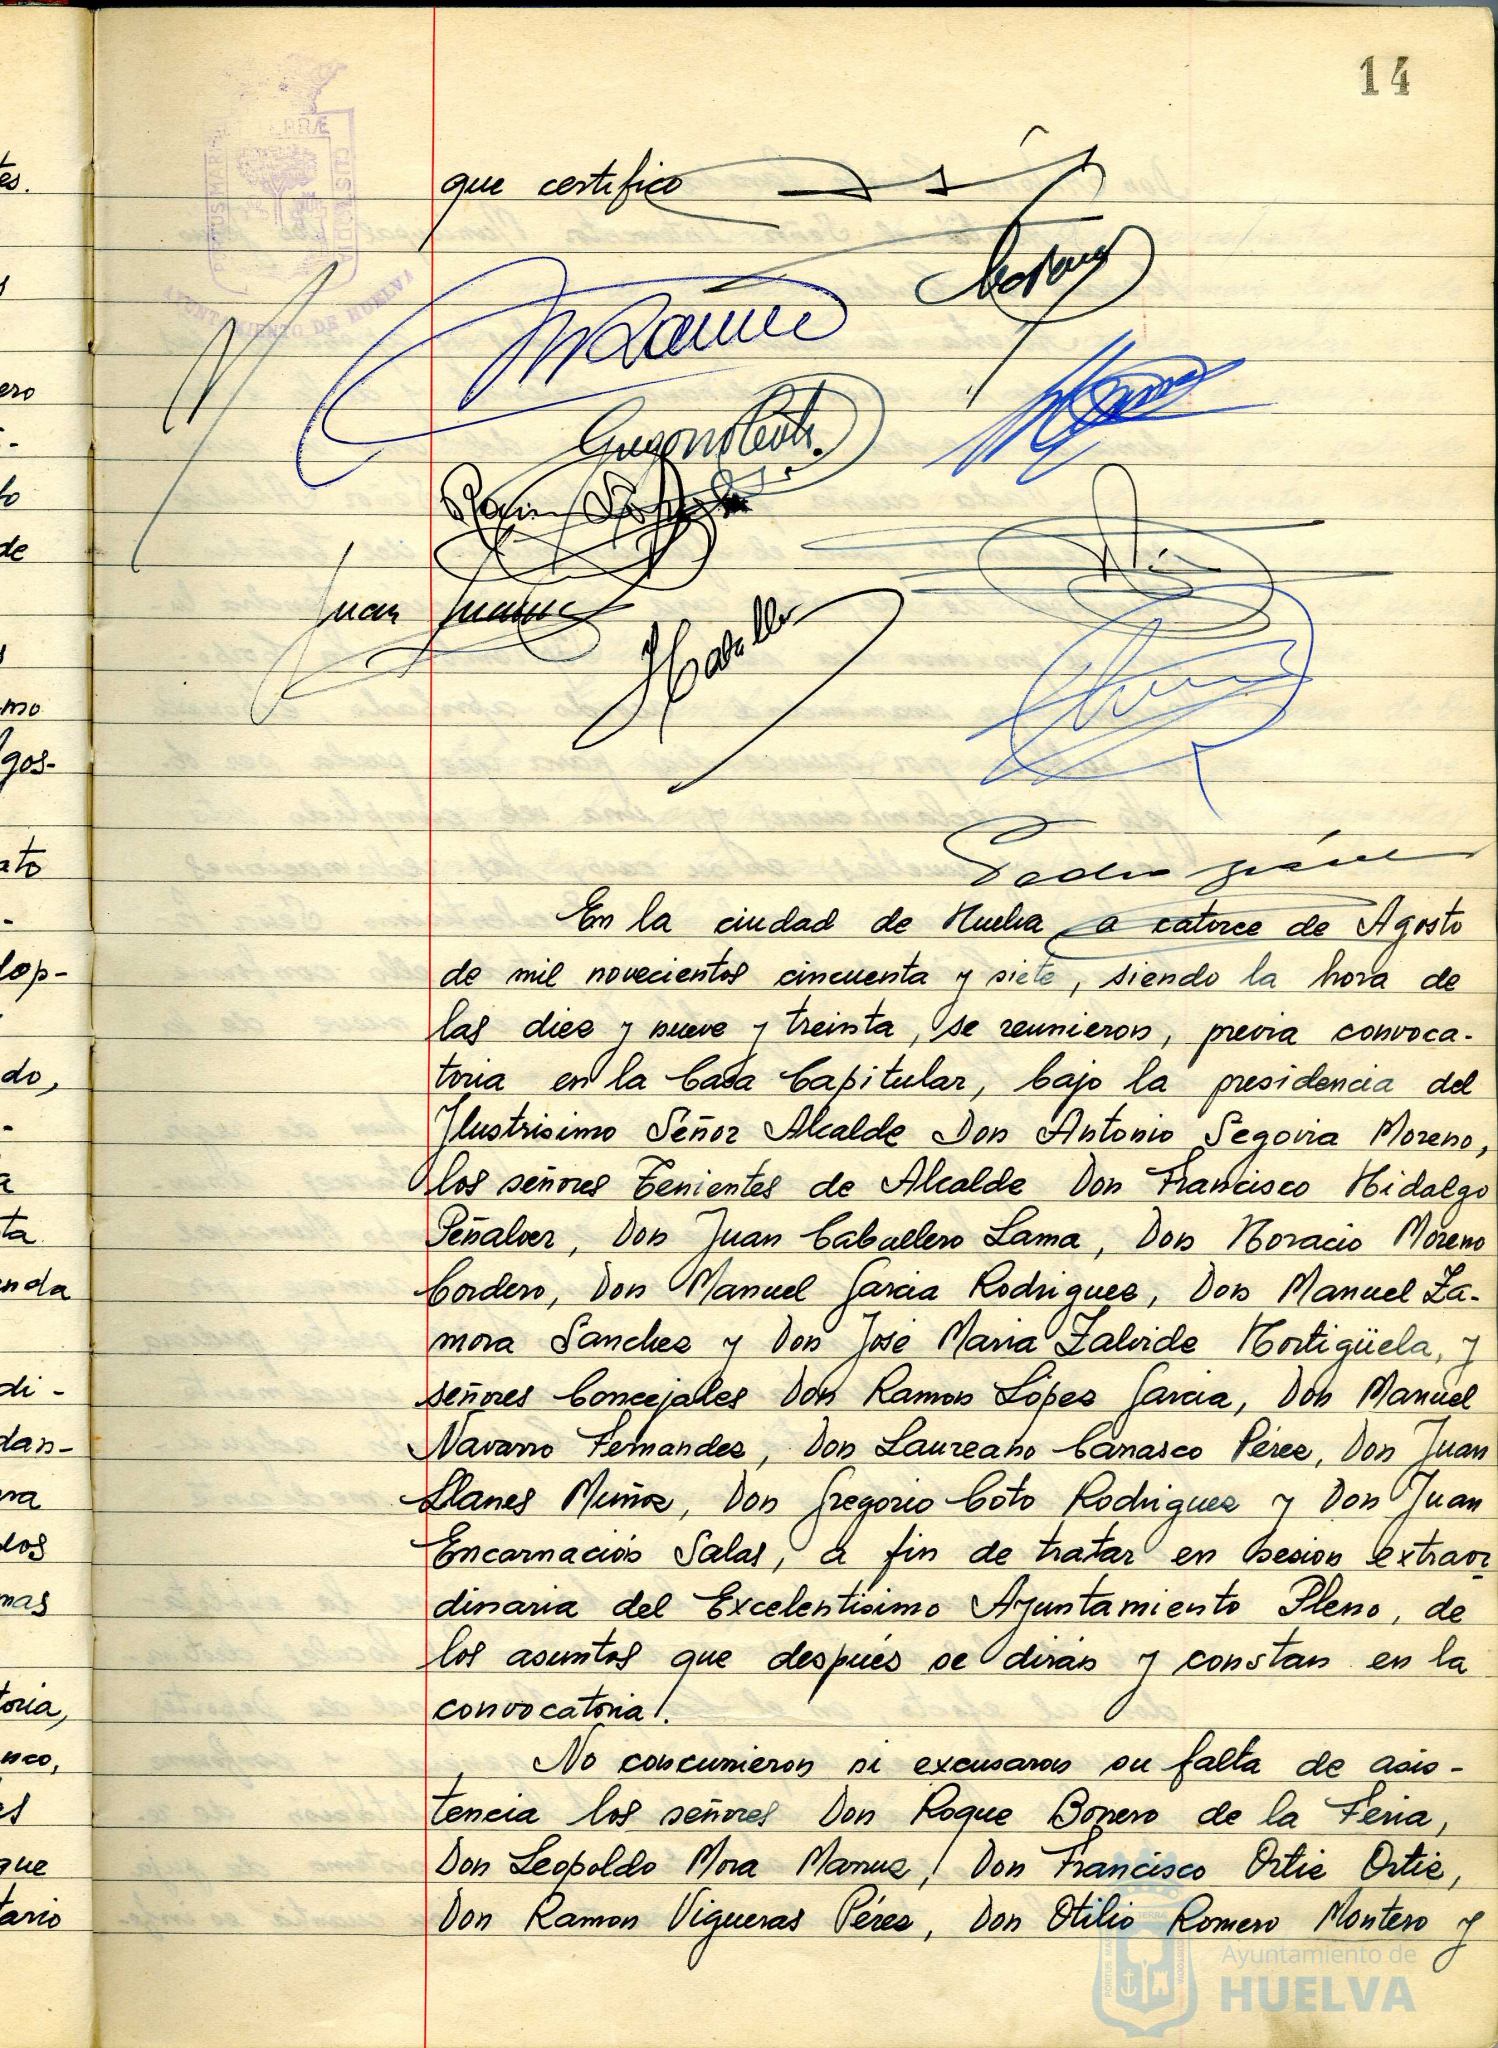 14
que certifico
AYUNTAMIENTO DE HUELVA
Gregorio Coto
Juan
En la ciudad de Huelva a catorce de Agosto
de mil novecientos cincuenta y siete, siendo la hora de
las diez y nueve y treinta, se reunieron, previa convoca-
toria en la Casa Capitular, bajo la presidencia del
Ilustrisimo Señor Alcalde Don Antonio Segovia Moreno,
los señores Tenientes de Alcalde Don Francisco Hidalgo
Peñalver, Don Juan Caballero Lama, Don Horacio Moreno
Cordero, Don Manuel Garcia Rodriguez, Don Manuel Za-
mora Sanchez y Don José Maria Zalvide Hortigüela, y
señores Concejales Don Ramon López Garcia, Don Manuel
Navarro Fernandez, Don Laureano Carrasco Pérez, Don Juan
Llanes Muñoz, Don Gregorio Coto Rodriguez y Don Juan
Encarnación Salas, a fin de tratar en sesion extraor-
dinaria del Excelentisimo Ayuntamiento Pleno, de
los asuntos que después se dirán y constan en la
convocatoria.
No concurrieron ni excusaron su falta de asis-
tencia los señores Don Roque Borrero de la Feria,
Don Leopoldo Mora Marruz, Don Francisco Ortiz Ortiz,
Don Ramon Vigueras Pérez, Don Otilio Romero Montero y
Ayuntamiento de
HUELVA
tes.
ero
to
de
mo
Agos-
ato
-
dop-
do,
-
a
ta
enda
di-
dan-
ra
dos
mas
toria,
nco,
es
que
tario